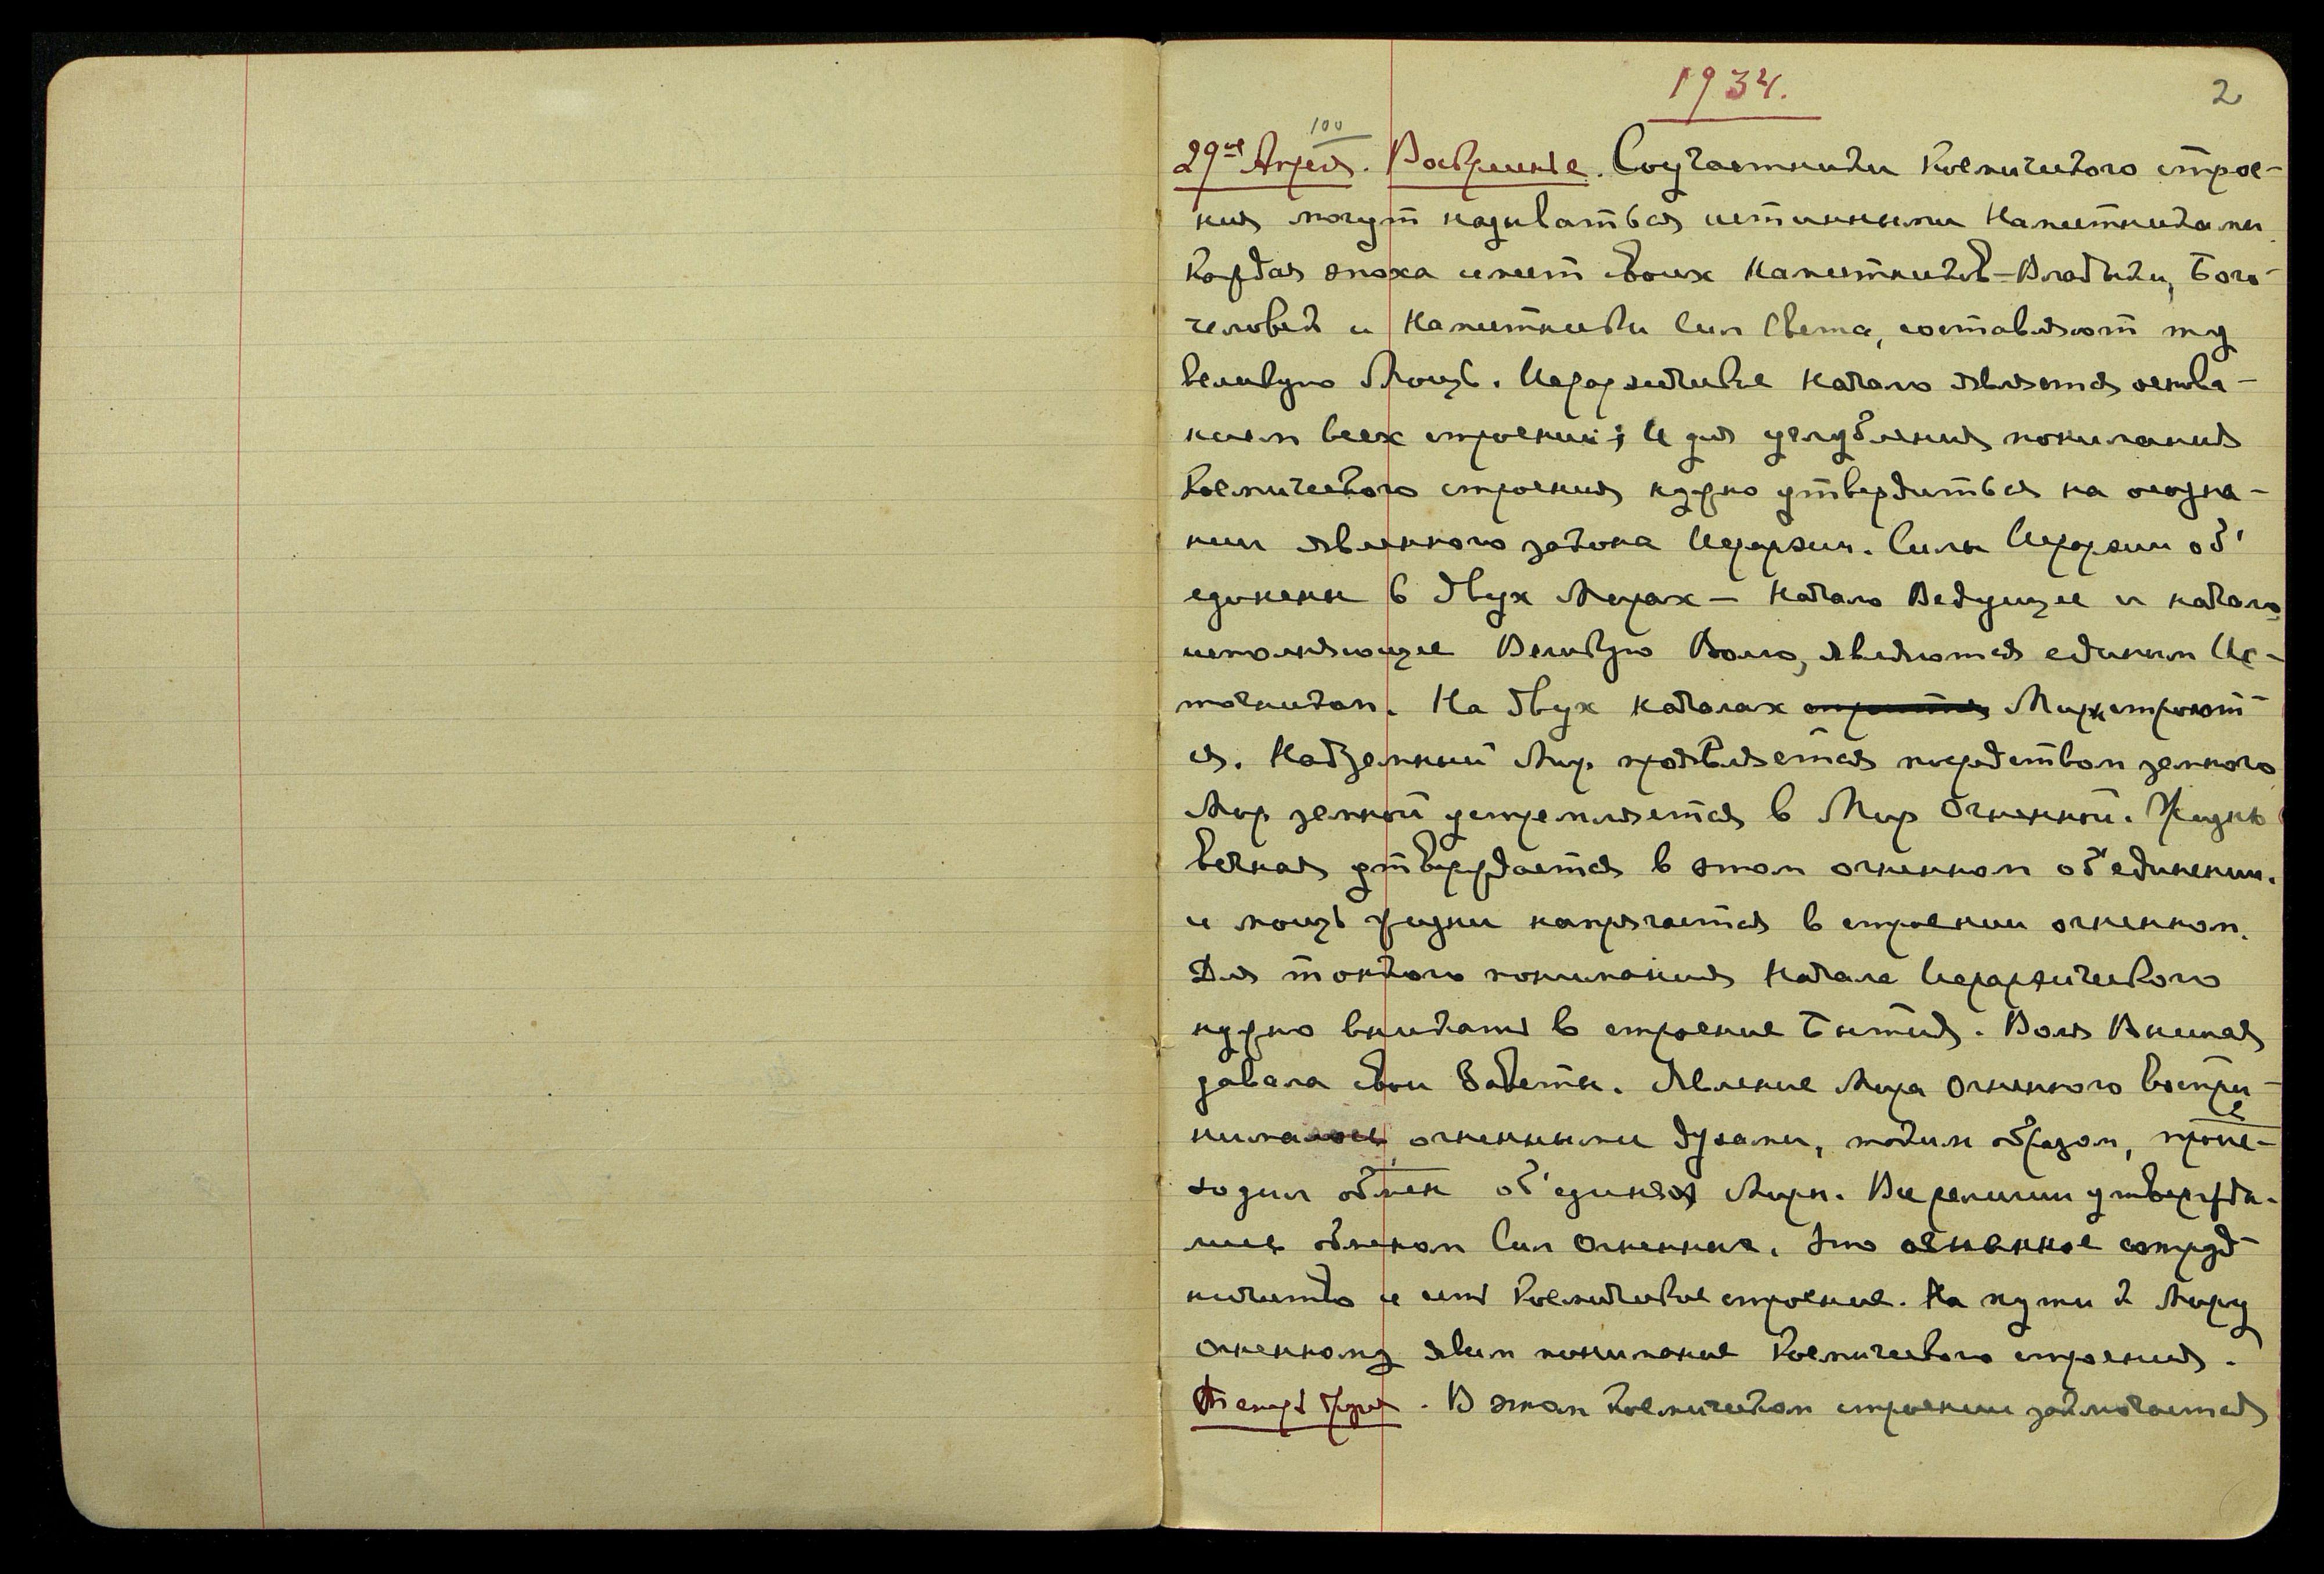 1934.
2
100
29ое Апреля. Воскресенье. Соучастники Космического строе-
ния могут называться истинными Наместниками.
Каждая эпоха имеет своих Наместников-Владыки, Бого-
человек и Наместники Сил Света, составляют ту
великую Мощь. Иерархическое Начало является основа-
нием всех строений; И для углубления понимания
Космического строения нужно утвердиться на осозна-
нии явленного закона Иерархии. Силы Иерархии об'
единены в двух Мирах — Начало Ведущее и начало,
исполняющее Великую Волю, являются единым Ис-
точником. На двух началах строится Миры строют-
ся. Надземный Мир проявляется посредством земного
Мир земной устремляется в Мир Огненный. Жизнь
вечная утверждается в этом огненном об'единении.
и мощь жизни напрягается в строении огненном.
Для тонкого понимания Начала Иерархического
нужно вникать в строение Бытия. Воля Высшая
давала свои Заветы. Явление Мира Огненного воспри-
нималось огненными духами, таким образом, проис-
ходил обмен об'единяя Миры. Все религии утвержда-
лись обменом Сил Огненных. Это огненное сотруд-
ничество и есть Космическое строение. На пути к Миру
Огненному явим понимание Космического строения.
В этом Космическом строении заключается